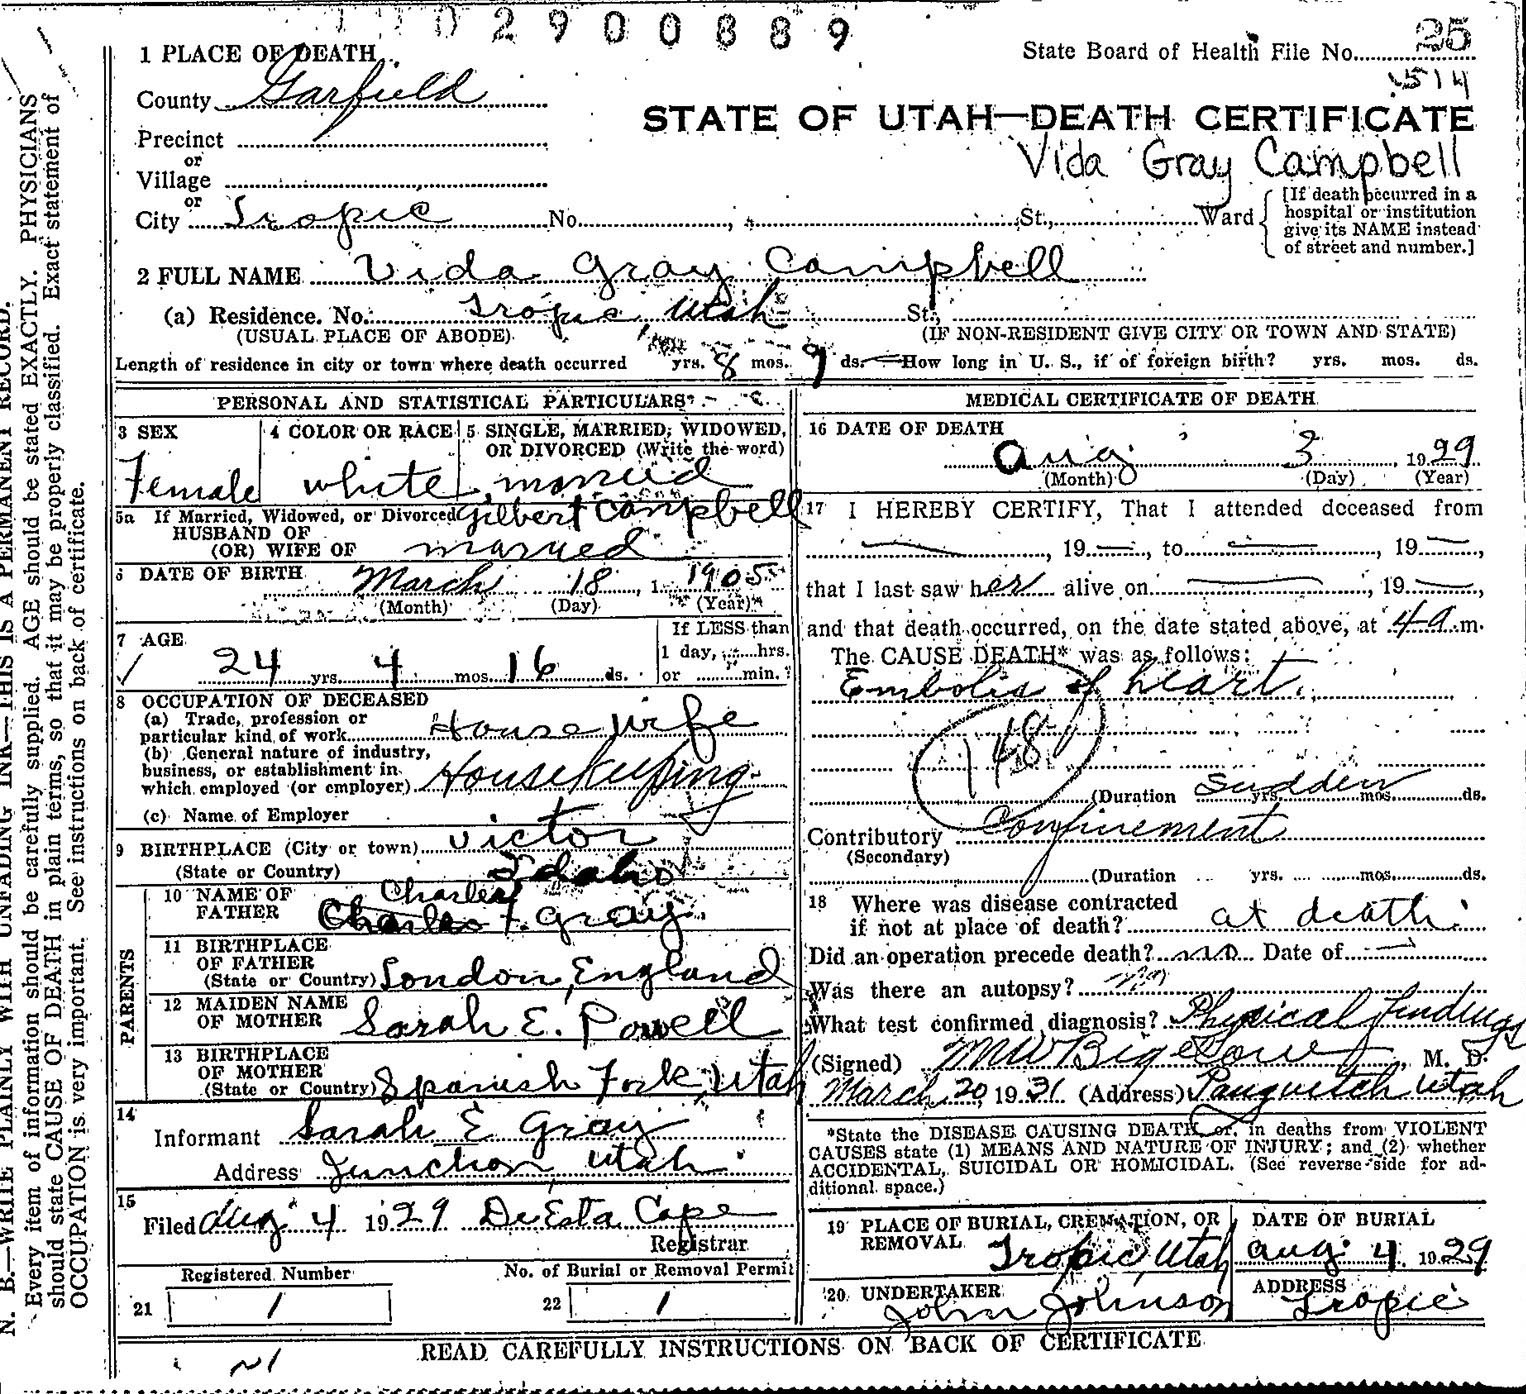 02900889
1 PLACE OF DEATH
State Board of Health File No. 25
514
County Garfield
STATE OF UTAH—DEATH CERTIFICATE
Precinct
Vida Gray Campbell
or
Village
or
City Tropic No. , St., Ward
[If death occurred in a
hospital or institution
give its NAME instead
of street and number.]
2 FULL NAME Vida Gray Campbell
(a) Residence. No. Tropic, Utah St.,
(USUAL PLACE OF ABODE) (IF NON-RESIDENT GIVE CITY OR TOWN AND STATE)
Length of residence in city or town where death occurred yrs. 8 mos. 9 ds. How long in U. S., if of foreign birth? yrs. mos. ds.
PERSONAL AND STATISTICAL PARTICULARS
3 SEX
Female
4 COLOR OR RACE
white
5 SINGLE, MARRIED, WIDOWED,
OR DIVORCED (Write the word)
married
5a If Married, Widowed, or Divorced Gilbert Campbell
HUSBAND OF
(OR) WIFE OF married
6 DATE OF BIRTH March 18, 1 1905
(Month) (Day) (Year)
7 AGE
24 yrs. 4 mos. 16 ds.
If LESS than
1 day, hrs.
or min.?
8 OCCUPATION OF DECEASED
(a) Trade, profession or
particular kind of work House wife
(b) General nature of industry,
business, or establishment in
which employed (or employer) Housekeeping
(c) Name of Employer
9 BIRTHPLACE (City or town) Victor
(State or Country) Idaho
PARENTS
10 NAME OF
FATHER
Charles
Charles F. Gray
11 BIRTHPLACE
OF FATHER
(State or Country) London, England
12 MAIDEN NAME
OF MOTHER Sarah E. Powell
13 BIRTHPLACE
OF MOTHER
(State or Country) Spanish Fork, Utah
14
Informant Sarah E Gray
Address Junction, Utah
15
Filed Aug 4 1929 DeEsta Cope
Registrar
Registered Number
21 1
No. of Burial or Removal Permit
22 1
MEDICAL CERTIFICATE OF DEATH
16 DATE OF DEATH
Aug 3, 1929
(Month) (Day) (Year)
17 I HEREBY CERTIFY, That I attended deceased from
—, 19—, to —, 19—,
that I last saw her alive on —, 19—,
and that death occurred, on the date stated above, at 4 a.m.
The CAUSE DEATH* was as follows:
Embolis of heart.
148
(Duration Sudden yrs. mos. ds.
Contributory Confinement
(Secondary)
(Duration yrs. mos. ds.
18 Where was disease contracted
if not at place of death? at death
Did an operation precede death? no Date of —
Was there an autopsy? no
What test confirmed diagnosis? Physical findings
(Signed) MW Bigelow, M. D.
March 20 1931 (Address) Panguitch Utah
*State the DISEASE CAUSING DEATH or, in deaths from VIOLENT
CAUSES state (1) MEANS AND NATURE OF INJURY; and (2) whether
ACCIDENTAL, SUICIDAL OR HOMICIDAL. (See reverse side for ad-
ditional space.)
19 PLACE OF BURIAL, CREMATION, OR
REMOVAL Tropic, Utah
DATE OF BURIAL
Aug. 4 1929
20 UNDERTAKER
John Johnson
ADDRESS
Tropic
READ CAREFULLY INSTRUCTIONS ON BACK OF CERTIFICATE
N. B.—WRITE PLAINLY WITH UNFADING INK—THIS IS A PERMANENT RECORD.
Every item of information should be carefully supplied. AGE should be stated EXACTLY. PHYSICIANS
should state CAUSE OF DEATH in plain terms, so that it may be properly classified. Exact statement of
OCCUPATION is very important. See instructions on back of certificate.